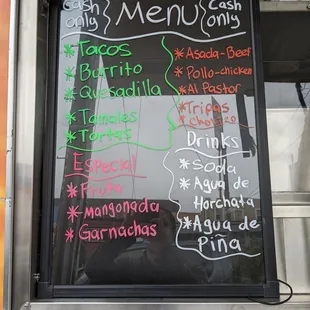 Cash only
Menu
Cash only
* Tacos
* Burrito
* Quesadilla
* Tamales
* Tortas
* Asada-Beef
* Pollo-chicken
* Al Pastor
* Tripas
* Chorizo
Drinks
* Soda
* Agua de
Horchata
* Agua de
Piña
Especial
* Fruta
* Mangonada
* Garnachas